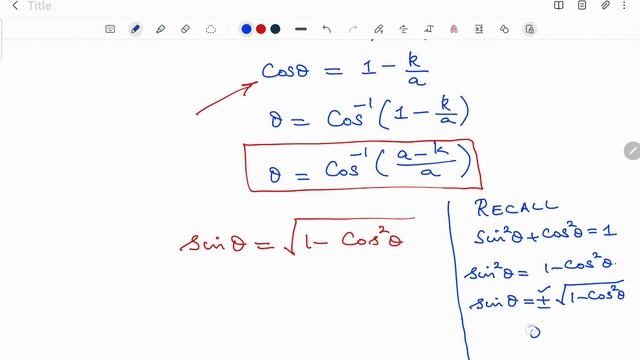 Title
Cosθ = 1 - k/a
θ = Cos⁻¹(1 - k/a)
θ = Cos⁻¹((a-k)/a)
sinθ = √(1 - Cos²θ)
RECALL
Sin²θ + Cos²θ = 1
sin²θ = 1-Cos²θ.
sinθ = ± √(1-Cos²θ)